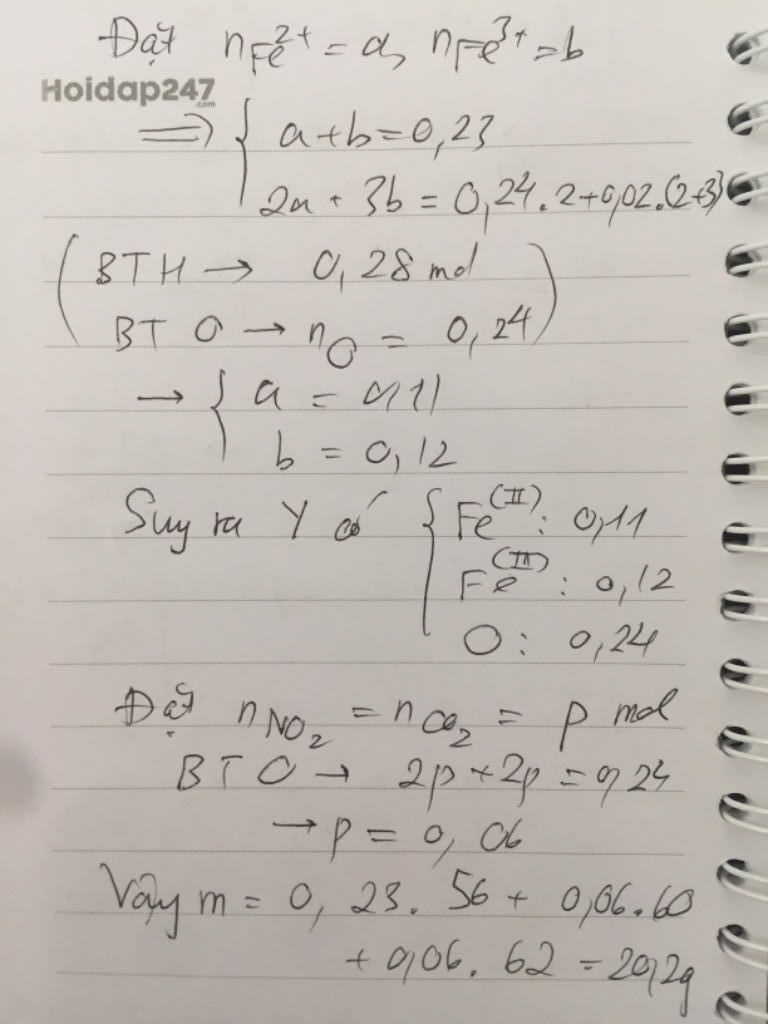 Đặt nFe²⁺ = a, nFe³⁺ = b
Hoidap247
.com
⇒ { a + b = 0,23
2a + 3b = 0,24.2 + 0,02.(2+3)
( BTH → 0,28 mol )
BT O → nO = 0,24
→ { a = 0,11
b = 0,12
Suy ra Y có { Fe(II) : 0,11
Fe(III) : 0,12
O : 0,24
Đặt nNO₂ = nCO₂ = p mol
BTO → 2p + 2p = 0,24
→ p = 0,06
Vậy m = 0,23.56 + 0,06.60
+ 0,06.62 = 20,2g